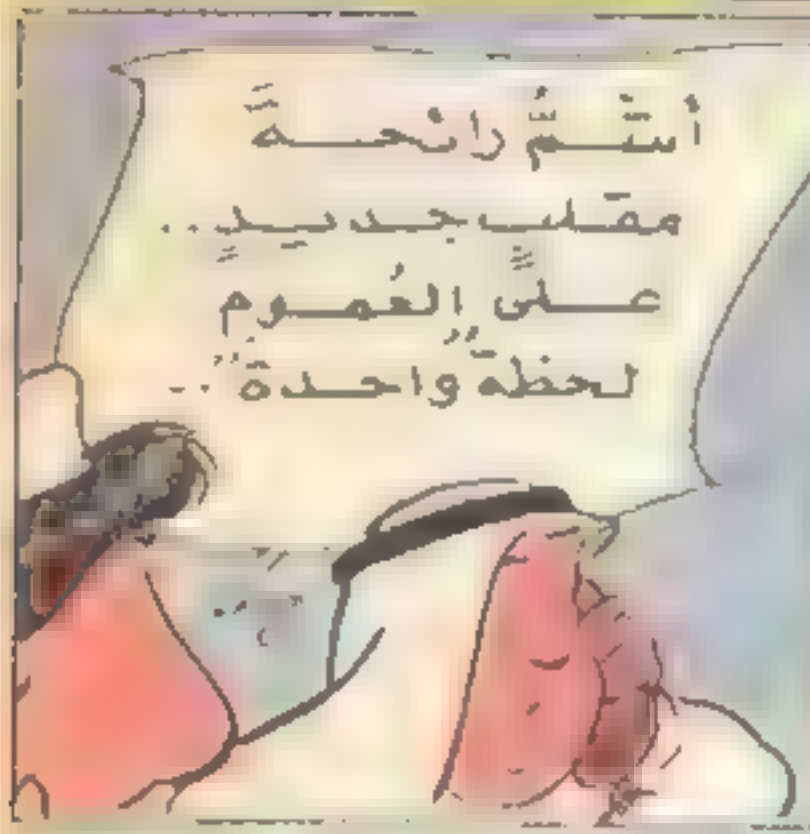 أشتمُّ رائحةَ
مقلبٍ جديدٍ..
علىٍ العُمومِ
لحظةً واحدةً..